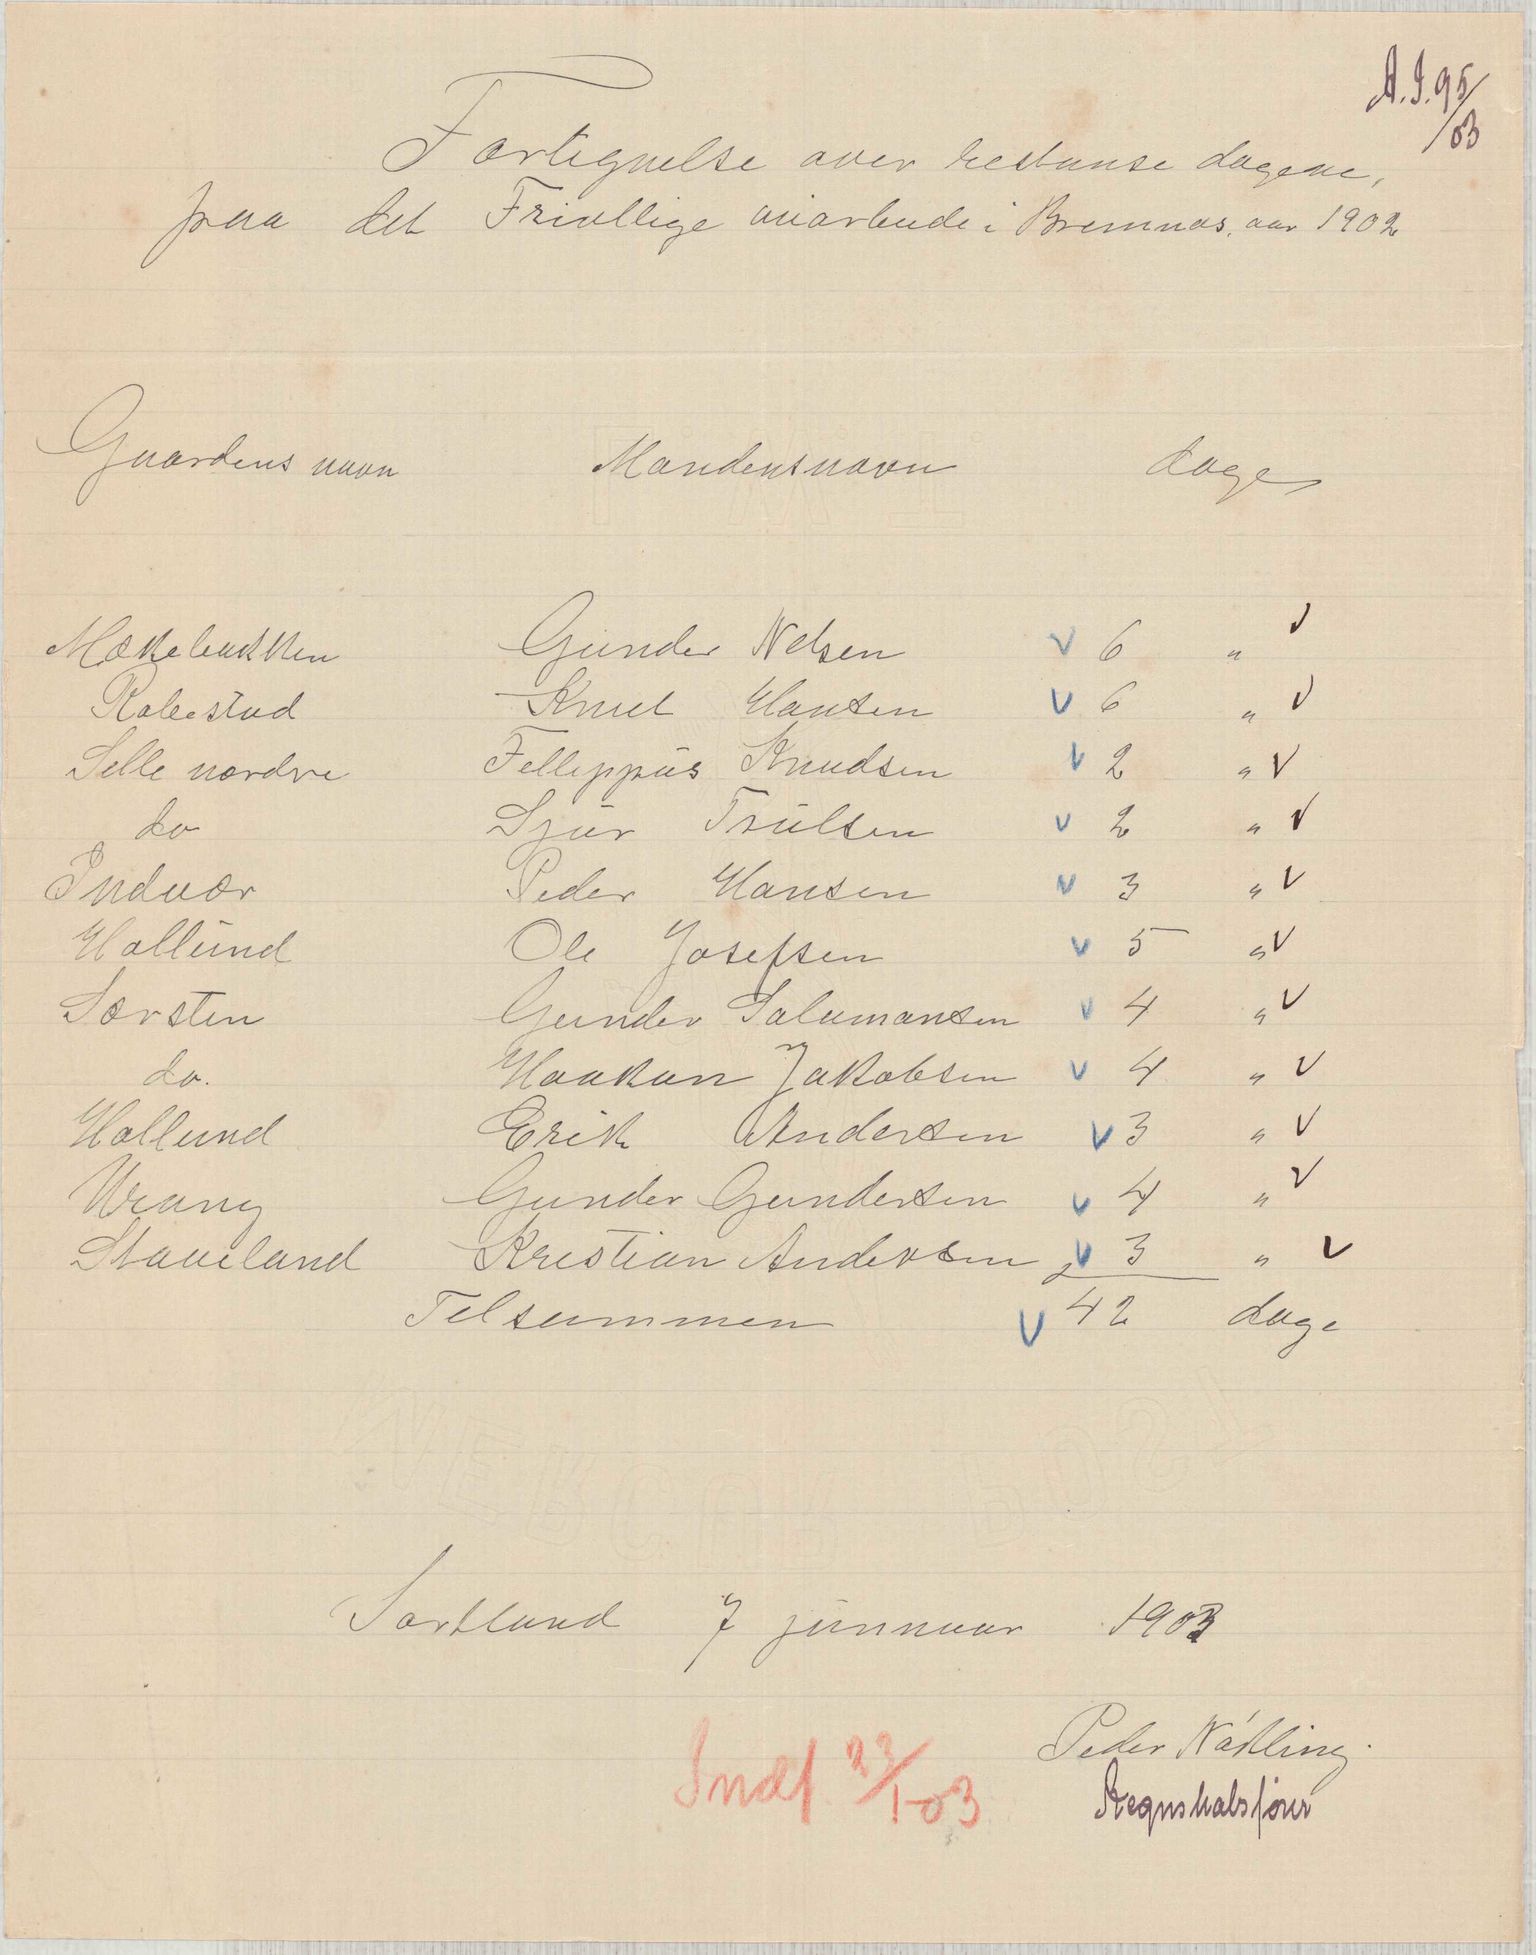 A.J. 95/03
Fortegnelse over restanse dagene,
paa det Frivllige veiarbeide i Bremnæs, aar 1902
Gaardens navn Mandens navn dage
Mækebakken Gunder Nelsen v 6 „ v
Robestad Knut Hansen v 6 „ v
Selle nordre Felleppus Knudsen v 2 „ v
do Sjur Trulsen v 2 „ v
Indvær Peder Hansen v 3 „ v
Hollund Ole Josefsen v 5 „ v
Sørsten Gunder Salamonsen v 4 „ v
do. Haakon Jakobsen v 4 „ v
Hollund Erik Andersen v 3 „ v
Urang Gunder Gundersen v 4 „ v
Staveland Kristian Andersen v 3 „ v
Telsammen v 42 dage
Sortland 7 januar 1903
Peder
Indf 22/1-03 Regnskabsfører